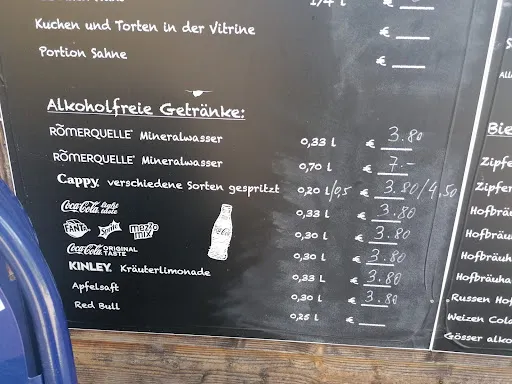 1/4 l € 3.80
Kuchen und Torten in der Vitrine € __
Portion Sahne € __
Alkoholfreie Getränke:
RÖMERQUELLE Mineralwasser 0,33 l € 3.80
RÖMERQUELLE Mineralwasser 0,70 l € 7.-
Cappy verschiedene Sorten gespritzt 0,20 l/0,5 € 3.80/4.50
Coca-Cola light taste 0,33 l € 3.80
FANTA Sprite mezzo mix 0,30 l € 3.80
Coca-Cola ORIGINAL TASTE 0,30 l € 3.80
KINLEY Kräuterlimonade 0,33 l € 3.80
Apfelsaft 0,30 l € 3.80
Red Bull 0,25 l € __
Bie
Zipfe
Zipfer
Hofbräu
Hofbräuh
Hofbräuha
Russen Hof
Weizen Cola
Gösser alko